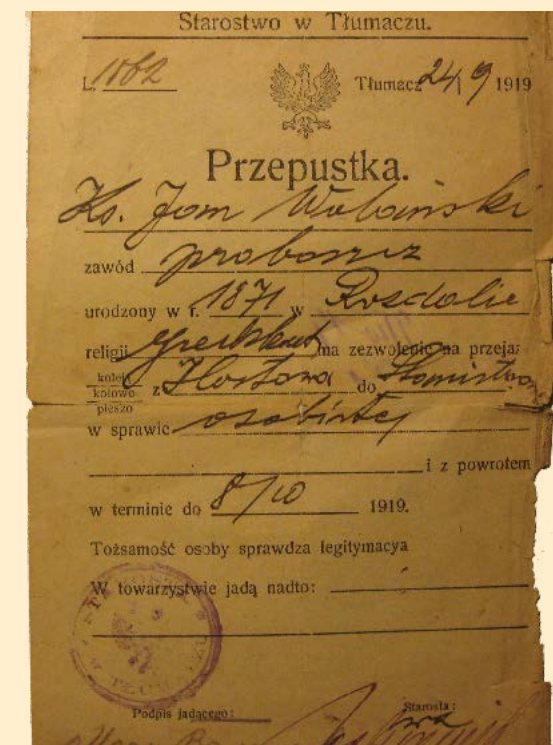 Starostwo w Tłumaczu.
L. 1062
Tłumacz 24/9 1919
Przepustka.
Ks. Jan Wolański
zawód proboszcz
urodzony w r. 1871 w
religii ma zezwolenie na przejaz
koleją
kołowo z Hostowa do
pieszo
w sprawie osobistej
i z powrotem
w terminie do 8/10 1919.
Tożsamość osoby sprawdza legitymacya
W towarzystwie jadą nadto:
Podpis jadącego: Starosta: